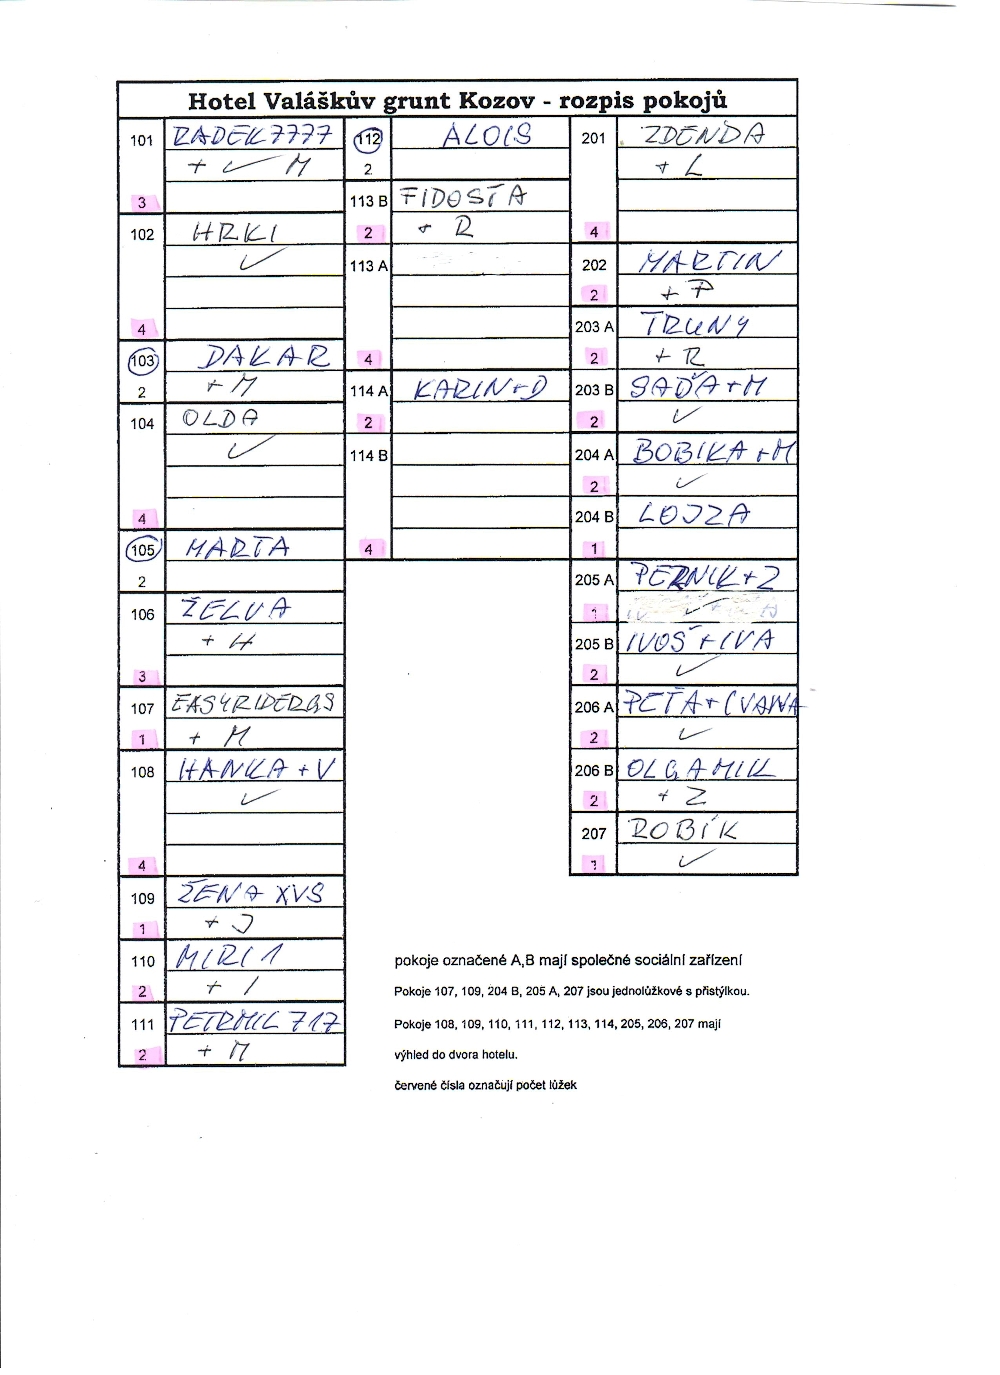 Hotel Valáškův grunt Kozov - rozpis pokojů
101 RADEK7777
+ ✓ M
3
102 HRKI
✓
4
103 DAKAR
2 + M
104 OLDA
✓
4
105 MARTA
2
106 ŽELVA
+ H
3
107 EASYRIDERGS
1 + M
108 HANKA + V
✓
4
109 ŽENA XVS
1 + J
110 MIRI 1
2 + I
111 PETRMIL 717
2 + M
112 ALOIS
2
113 B FIDOSŤA
2 + R
113 A
4
114 A KARIN+D
2
114 B
4
201 ZDENDA
+ L
4
202 MARTIN
2 + P
203 A TRUNY
2 + R
203 B SAĎA+M
2 ✓
204 A BOBIKA+M
2 ✓
204 B LOJZA
1
205 A PERNIK+Z
1
205 B IVOŠ+IVA
2 ✓
206 A PEŤA+IVANA
2 ✓
206 B OLGAMIK
2 + Z
207 ROBÍK
1 ✓
pokoje označené A,B mají společné sociální zařízení
Pokoje 107, 109, 204 B, 205 A, 207 jsou jednolůžkové s přistýlkou.
Pokoje 108, 109, 110, 111, 112, 113, 114, 205, 206, 207 mají
výhled do dvora hotelu.
červené čísla označují počet lůžek